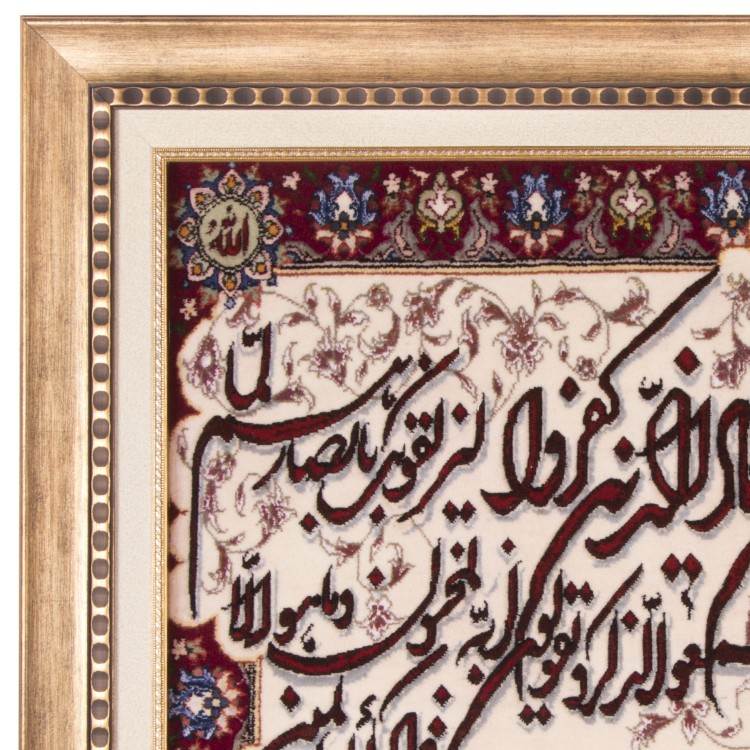 الله
الذین کفروا لیزلقونک بابصارهم لما
الذکر و یقولون انه لمجنون و ما هو الا